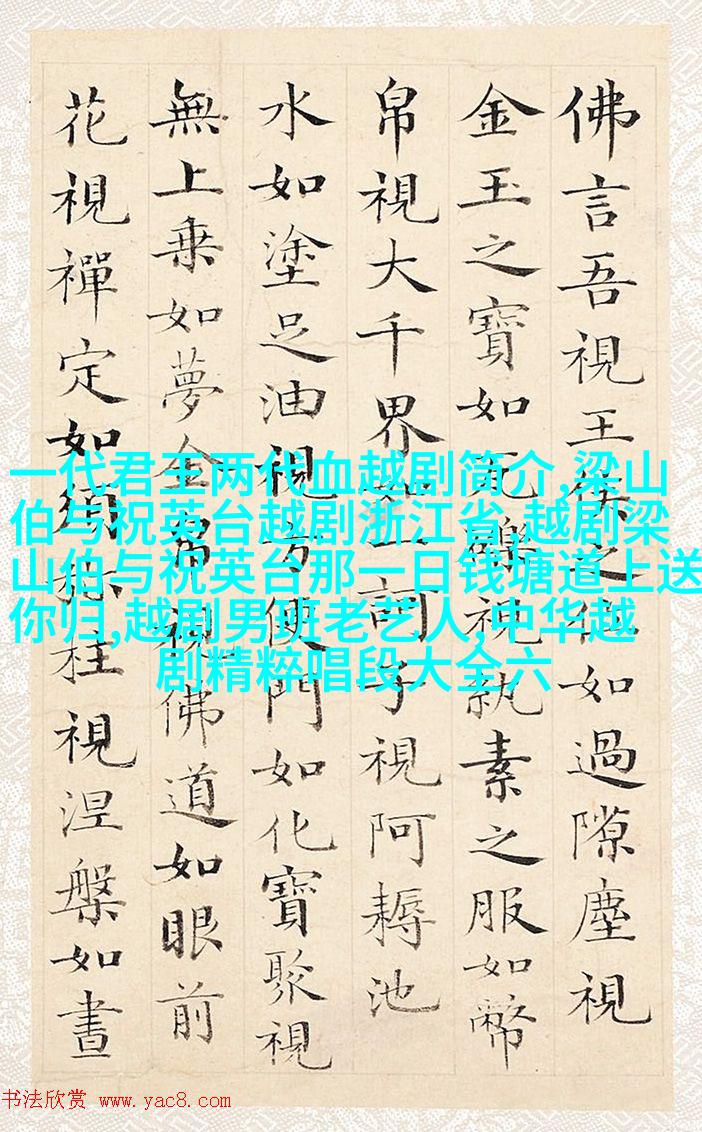 佛言吾視王侯之位如過隙塵視
金玉之寶如瓦礫視紈素之服如幣
帛視大千界如一訶子視阿耨池
水如塗足油視方便門如化寶聚視
無上乗如夢金帛視佛道如眼前
花視禪定如須彌柱視涅槃如晝
一代君王两代血越剧简介,梁山
伯与祝英台越剧浙江省,越剧梁
山伯与祝英台那一日钱塘道上送
你归,越剧男班老艺人,中华越
剧精粹唱段大全六
书法欣赏 www.yac8.com